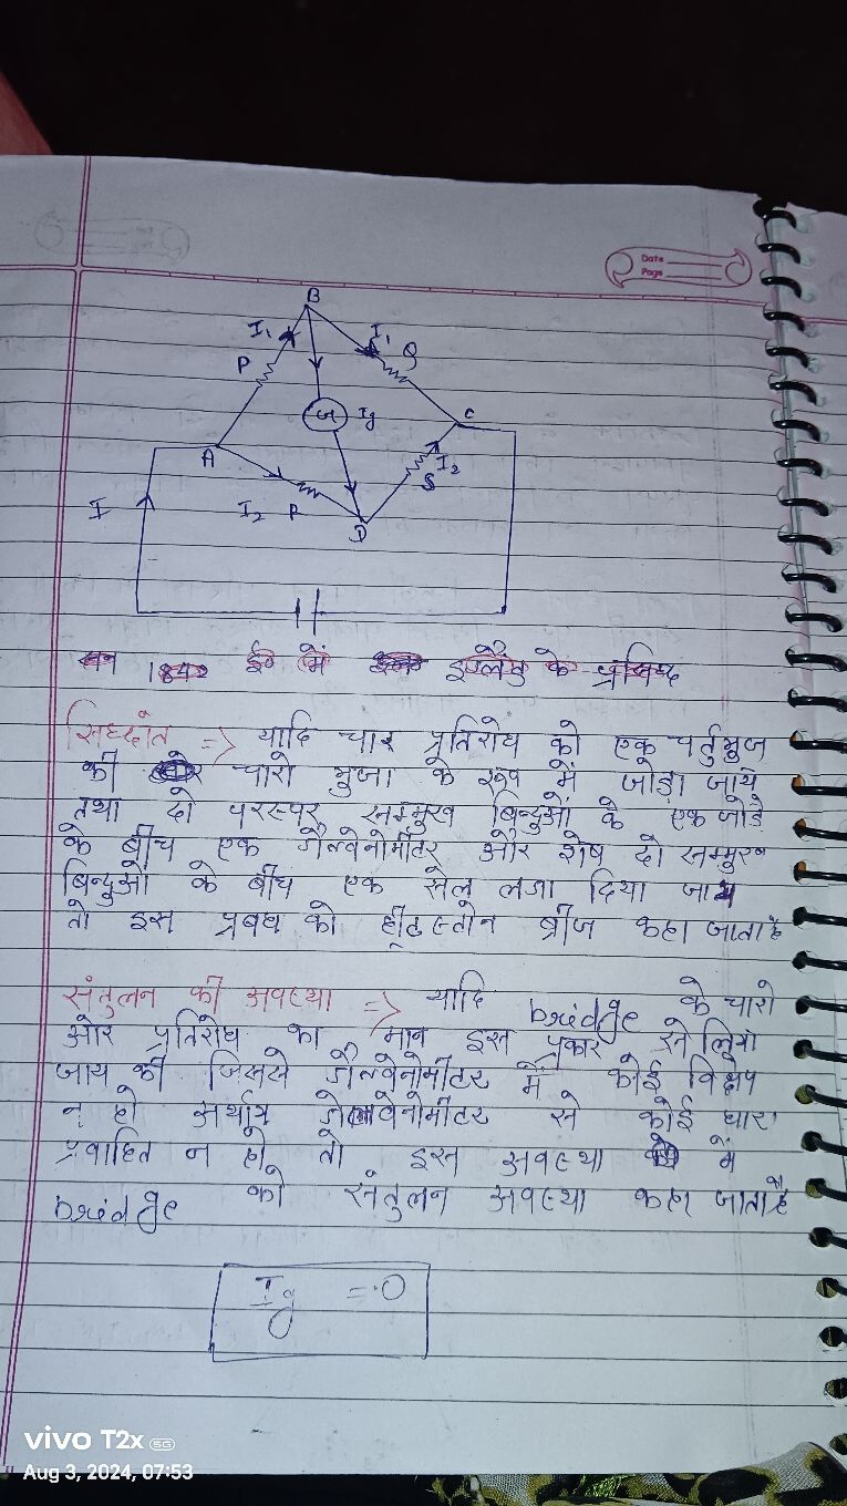 Date
Page
B
I₁
I₁
P
Q
G
Ig
C
A
I₂
S
I
I₂
R
D
सन 1842 ई० में इंग्लैंड के प्रसिध्द
सिध्दांत => यादि चार प्रतिरोध को एक चर्तुभुज
की चारो भुजा के रूप में जोड़ा जाये
तथा दो परस्पर सम्मुख बिन्दुओं के एक जोड़े
के बीच एक गैल्वेनोमीटर और शेष दो सम्मुख
बिन्दुओं के बीच एक सेल लगा दिया जाय
तो इस प्रबंध को ह्वीटस्टोन ब्रीज कहा जाता है
संतुलन की अवस्था => यादि bridge के चारो
ओर प्रतिरोध का मान इस प्रकार से लिया
जाय की जिससे गैल्वेनोमीटर में कोई विक्षेप
न हो अर्थात गेल्वेनोमीटर से कोई धारा
प्रवाहित न हो तो इस अवस्था में
bridge को संतुलन अवस्था कहा जाता है
Ig = 0
vivo T2x 5G
Aug 3, 2024, 07:53